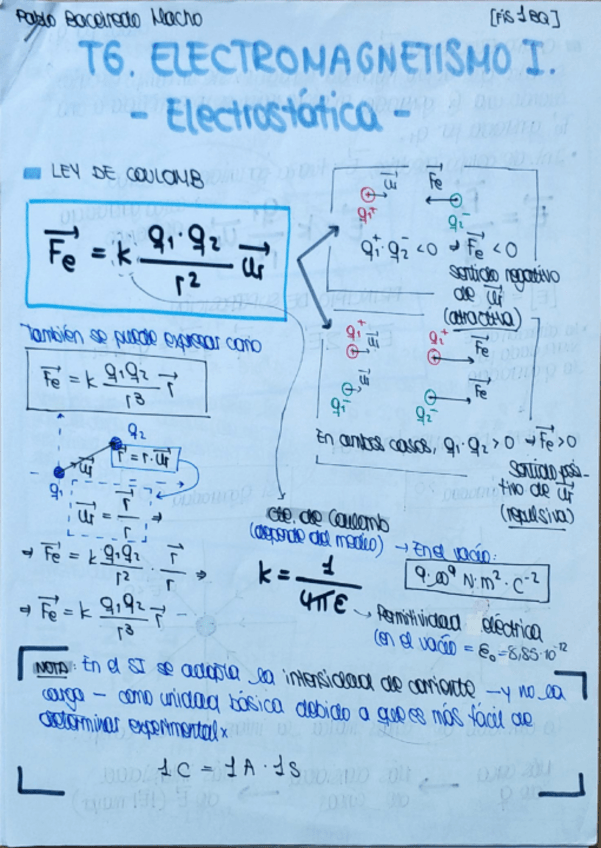 Pablo Baceiredo Macho
[FÍS 1 BQ]
T6. ELECTROMAGNETISMO I.
- Electrostática -
LEY DE COULOMB
F⃗e = k q₁·q₂/r² u⃗r
También se puede expresar como
F⃗e = k q₁q₂/r³ r⃗
u⃗r F⃗e
q₁⁺ q₂⁻
q₁⁺·q₂⁻ < 0 ⇒ F⃗e < 0
sentido negativo
de u⃗r
(atractiva)
q₁⁺ u⃗r q₂⁺ F⃗e
q₁⁻ u⃗r q₂⁻ F⃗e
En ambos casos, q₁·q₂ > 0 ⇒ F⃗e > 0
sentido posi-
tivo de u⃗r
(repulsiva)
q₂
r⃗ = r·u⃗r
u⃗r
q₁
u⃗r = r⃗/r ⇒
⇒ F⃗e = k q₁q₂/r² · r⃗/r ⇒
⇒ F⃗e = k q₁q₂/r³ r⃗
cte. de Coulomb
(depende del medio) → En el vacío:
9·10⁹ N·m²·C⁻²
k = 1/4πε
→ Permitividad eléctrica
(en el vacío = ε₀ = 8,85·10⁻¹²
NOTA: En el SI se adopta la intensidad de corriente — y no la
carga — como unidad básica debido a que es más fácil de
determinar experimental×
1 C = 1 A · 1 s